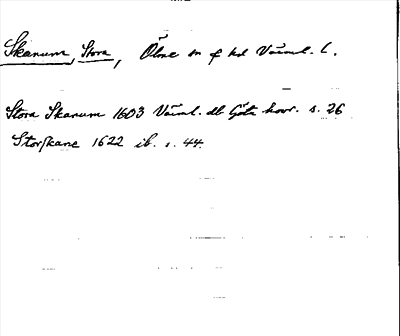 Skanum, Stora, Ölme sn f hd Värml. l.
Stora Skanum 1603 Värml. db Göta hovr. s. 26
Storskane 1622 ib. s. 44.